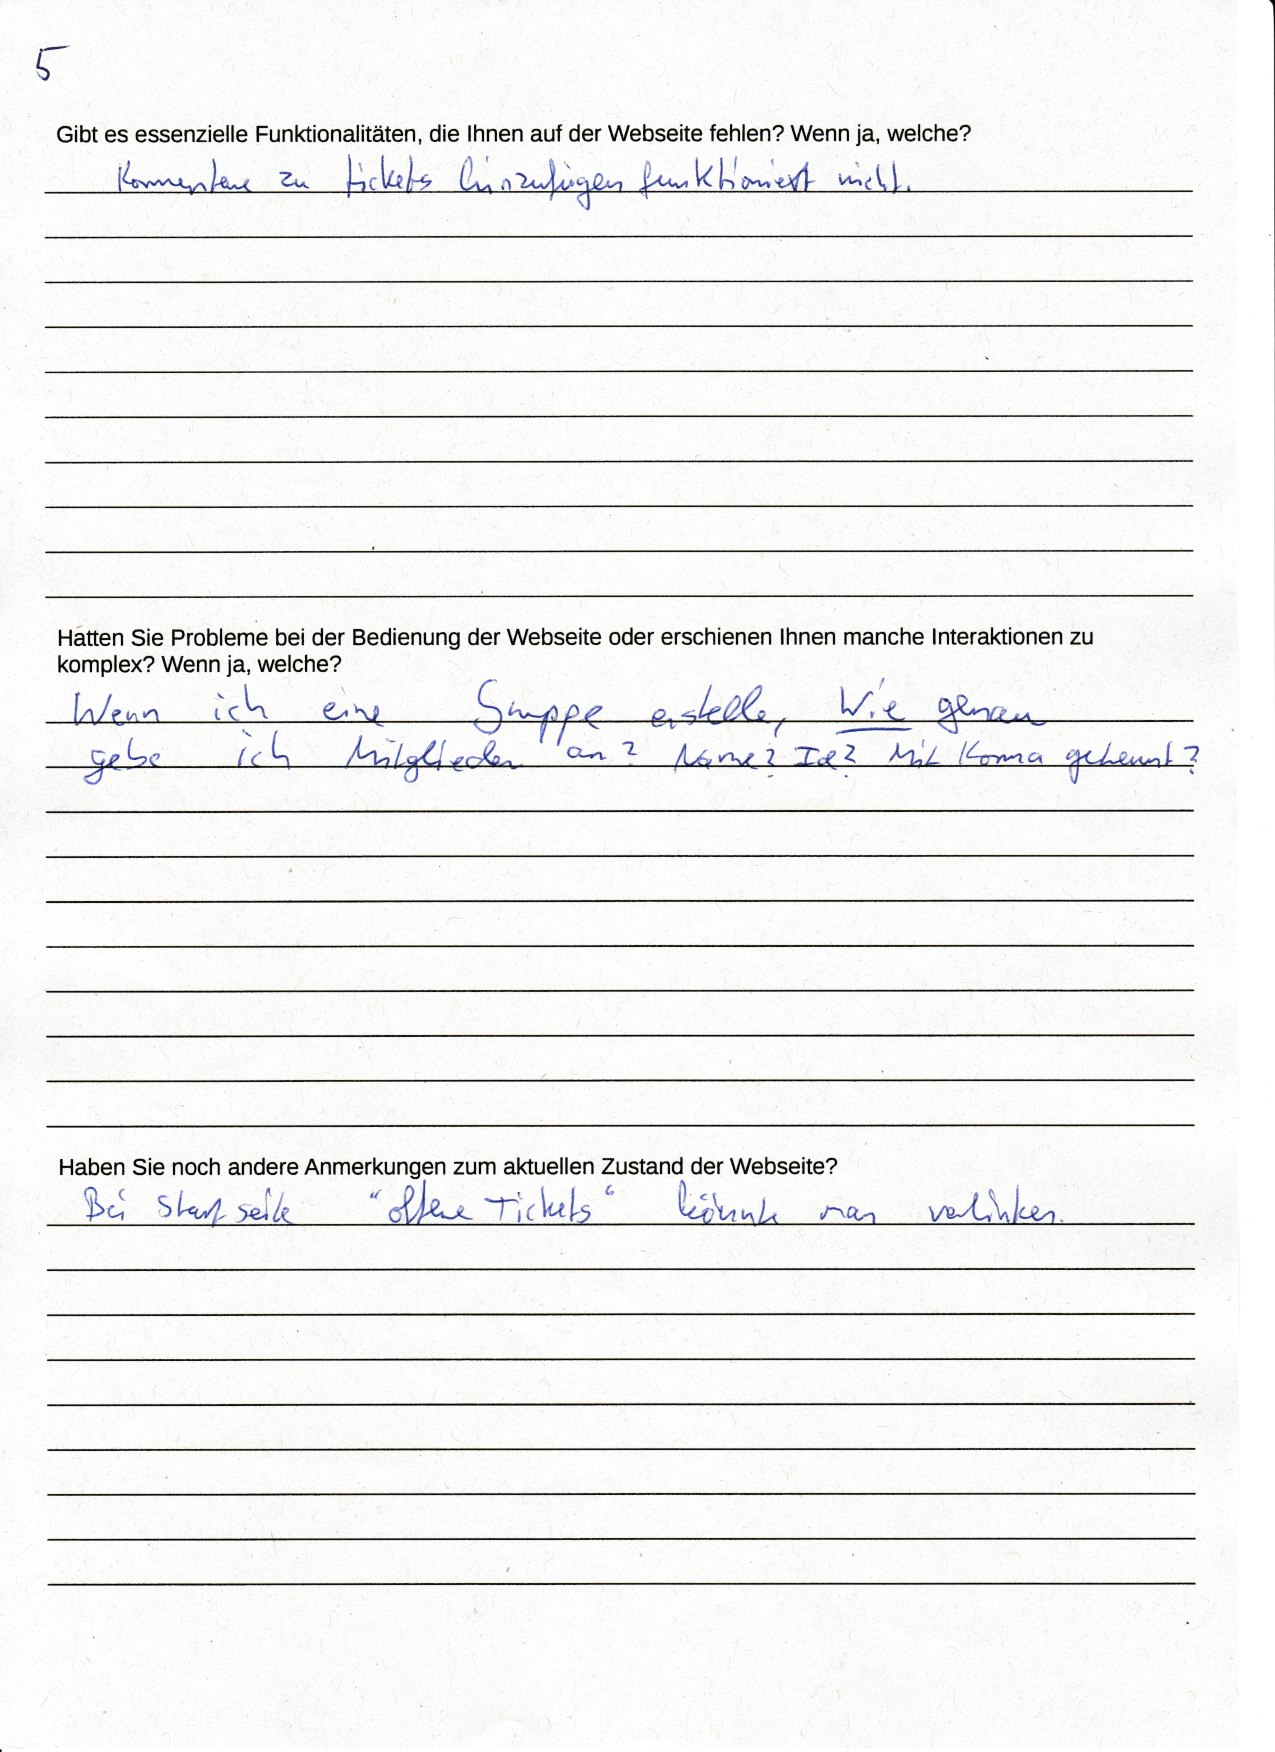 5
Gibt es essenzielle Funktionalitäten, die Ihnen auf der Webseite fehlen? Wenn ja, welche?
Kommentare zu tickets hinzufügen funktioniert nicht.
Hatten Sie Probleme bei der Bedienung der Webseite oder erschienen Ihnen manche Interaktionen zu
komplex? Wenn ja, welche?
Wenn ich eine Gruppe erstelle, Wie genau
gebe ich Mitglieder an? Name? Id? Mit Komma getrennt?
Haben Sie noch andere Anmerkungen zum aktuellen Zustand der Webseite?
Bei Startseite "offene Tickets" könnte man verlinken.